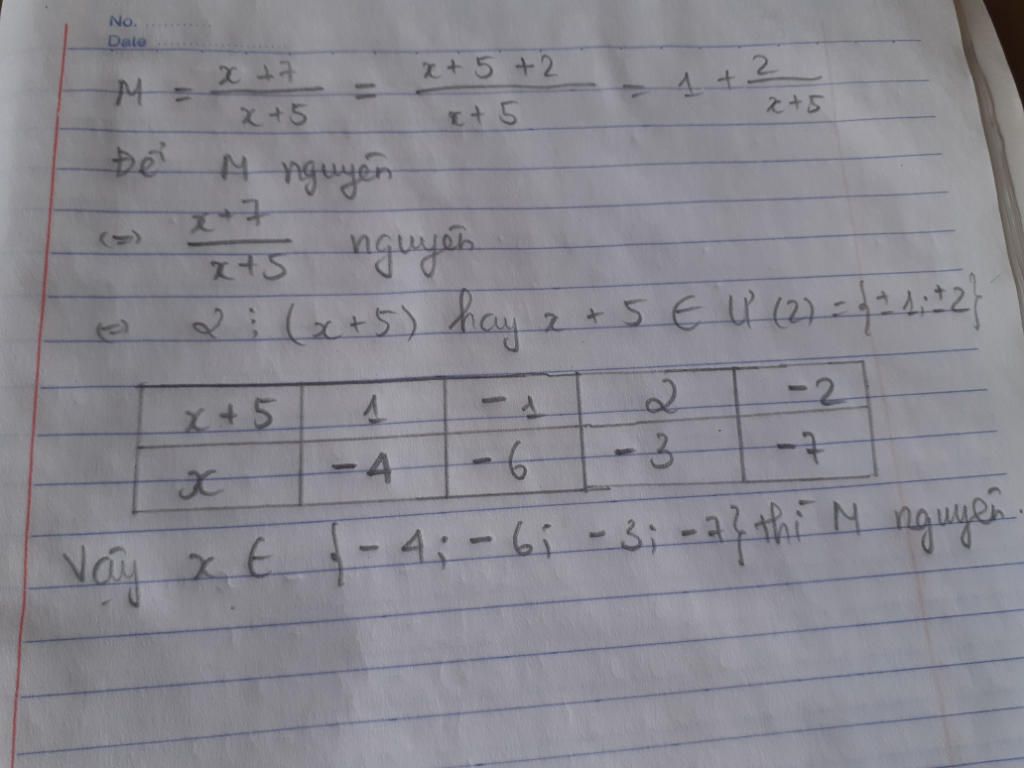 No. ............
Date ........................
M = \frac{x+7}{x+5} = \frac{x+5+2}{x+5} = 1 + \frac{2}{x+5}
Để M nguyên
<=> \frac{x+7}{x+5} nguyên
<=> 2 ⋮ (x+5) hay x + 5 ∈ Ư(2) = {±1; ±2}
x+5 | 1 | -1 | 2 | -2
x | -4 | -6 | -3 | -7
Vậy x ∈ {-4; -6; -3; -7} thì M nguyên.